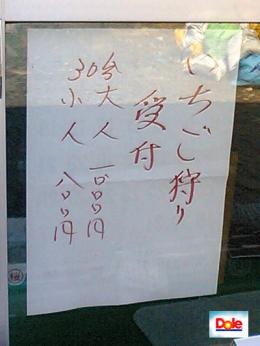 いちご狩り
受付
30分大人 一000円
小人 八00円
Dole